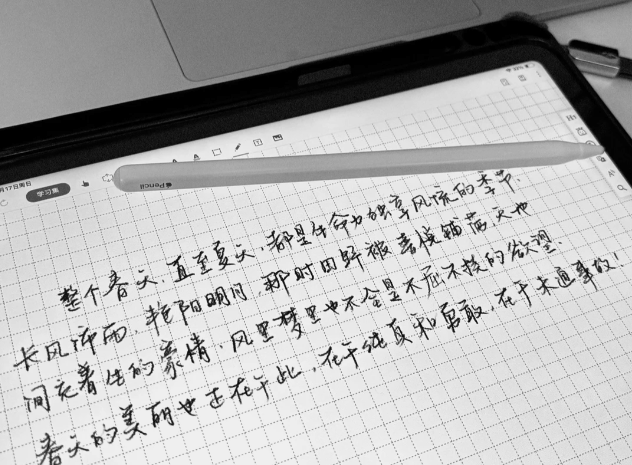 月17日周日
学习集
Pencil
整个春天，直至夏天，都是生命力独享风流的季节。
长风沛雨，艳阳明月，那时田野被喜悦铺满，天地
间充着生的豪情，风里梦里也不全是不屈不挠的欲望。
春天的美丽也正在于此，在于纯真和勇敢，在于未通事故！